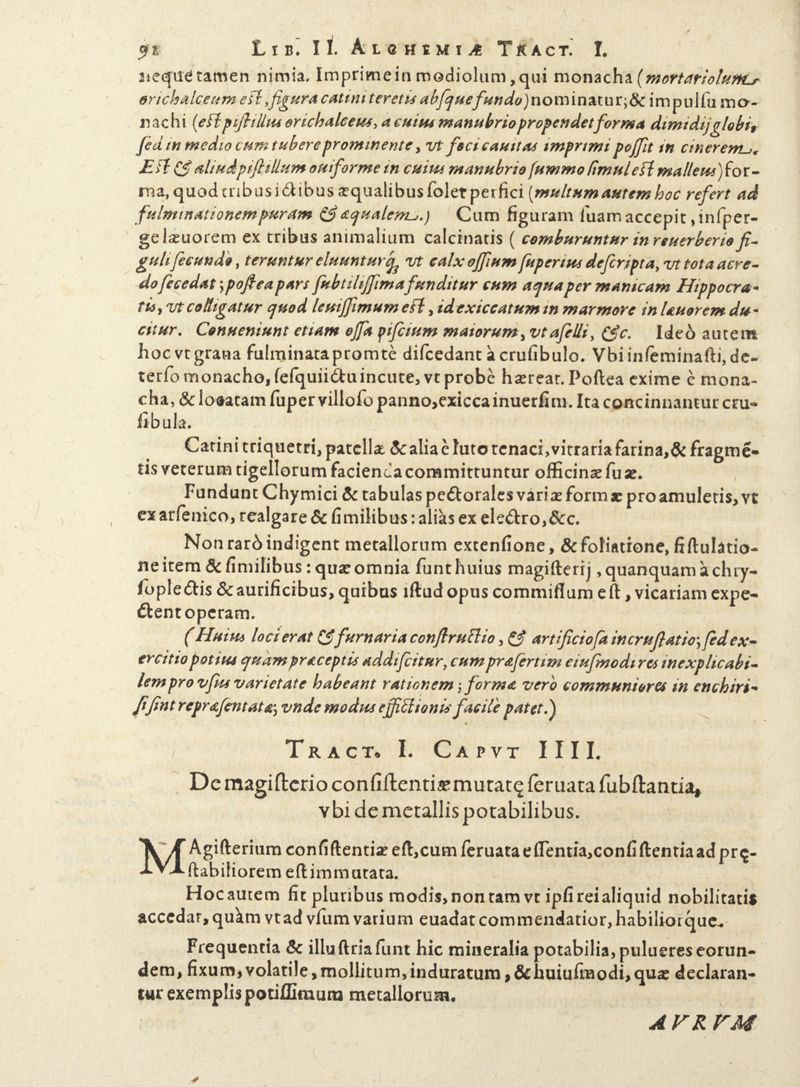 92 LIB. II. ALCHEMIÆ TRACT. I.
neque tamen nimia. Imprime in modiolum, qui monacha (mortariolum
orichalceum est, figura catini teretis absque fundo) nominatur; & impulsu mo-
nachi (est pistillus orichalceus, a cuius manubrio propendet forma dimidij globi,
sed in medio cum tubere prominente, vt foci cauitas imprimi possit in cinerem.
Est & aliud pistillum ouiforme in cuius manubrio summo simul est malleus) for-
ma, quod tribus ictibus æqualibus solet perfici (multum autem hoc refert ad
fulminationem puram & æqualem.) Cum figuram suam accepit, insper-
ge læuorem ex tribus animalium calcinatis ( comburuntur in reuerberio fi-
guli secundo, teruntur eluunturq́; vt calx ossium superius descripta, vt tota acre-
do secedat; postea pars subtilissima funditur cum aqua per manicam Hippocra-
tis, vt colligatur quod leuissimum est, id exiccatum in marmore in læuorem du-
citur. Conueniunt etiam ossa piscium maiorum, vt aselli, &c. Ideò autem
hoc vt graua fulminata promtè discedant à crusibulo. Vbi inseminasti, de-
terso monacho, sesqui ictu incute, vt probè hærear. Postea exime è mona-
cha, & locatam super villoso panno, exicca inuersim. Ita concinnantur cru-
sibula.
Catini triquetri, patellæ & alia è luto tenaci, vitraria farina, & fragmẽ-
tis veterum tigellorum facienda committuntur officinæ suæ.
Fundunt Chymici & tabulas pectorales variæ formæ pro amuletis, vt
ex arsenico, realgare & similibus: aliàs ex electro, &c.
Non rarò indigent metallorum extensione, & foliatione, fistulatio-
ne item & similibus: quæ omnia sunt huius magisterij, quanquam à chry-
soplectis & aurificibus, quibus istud opus commissum est, vicariam expe-
ctent operam.
(Huius loci erat & furnaria constructio, & artificiosa incrustatio; sed ex-
ercitio potius quàm præceptis addiscitur, cum præsertim eiusmodi res inexplicabi-
lem pro vsus varietate habeant rationem; formæ verò communiores in enchiri-
si sint repræsentatæ; vnde modus effictionis facilè patet.)
TRACT. I. CAPVT IIII.
De magisterio consistentiæ mutatę seruata substantia,
vbi de metallis potabilibus.
MAgisterium consistentiæ est, cum seruata essentia, consistentia ad prę-
stabiliorem est immutata.
Hoc autem fit pluribus modis, non tam vt ipsi rei aliquid nobilitatis
accedat, quàm vt ad vsum varium euadat commendatior, habiliorque.
Frequentia & illustria sunt hic mineralia potabilia, pulueres eorun-
dem, fixum, volatile, mollitum, induratum, & huiusmodi, quæ declaran-
tur exemplis potissimum metallorum.
AVRVM